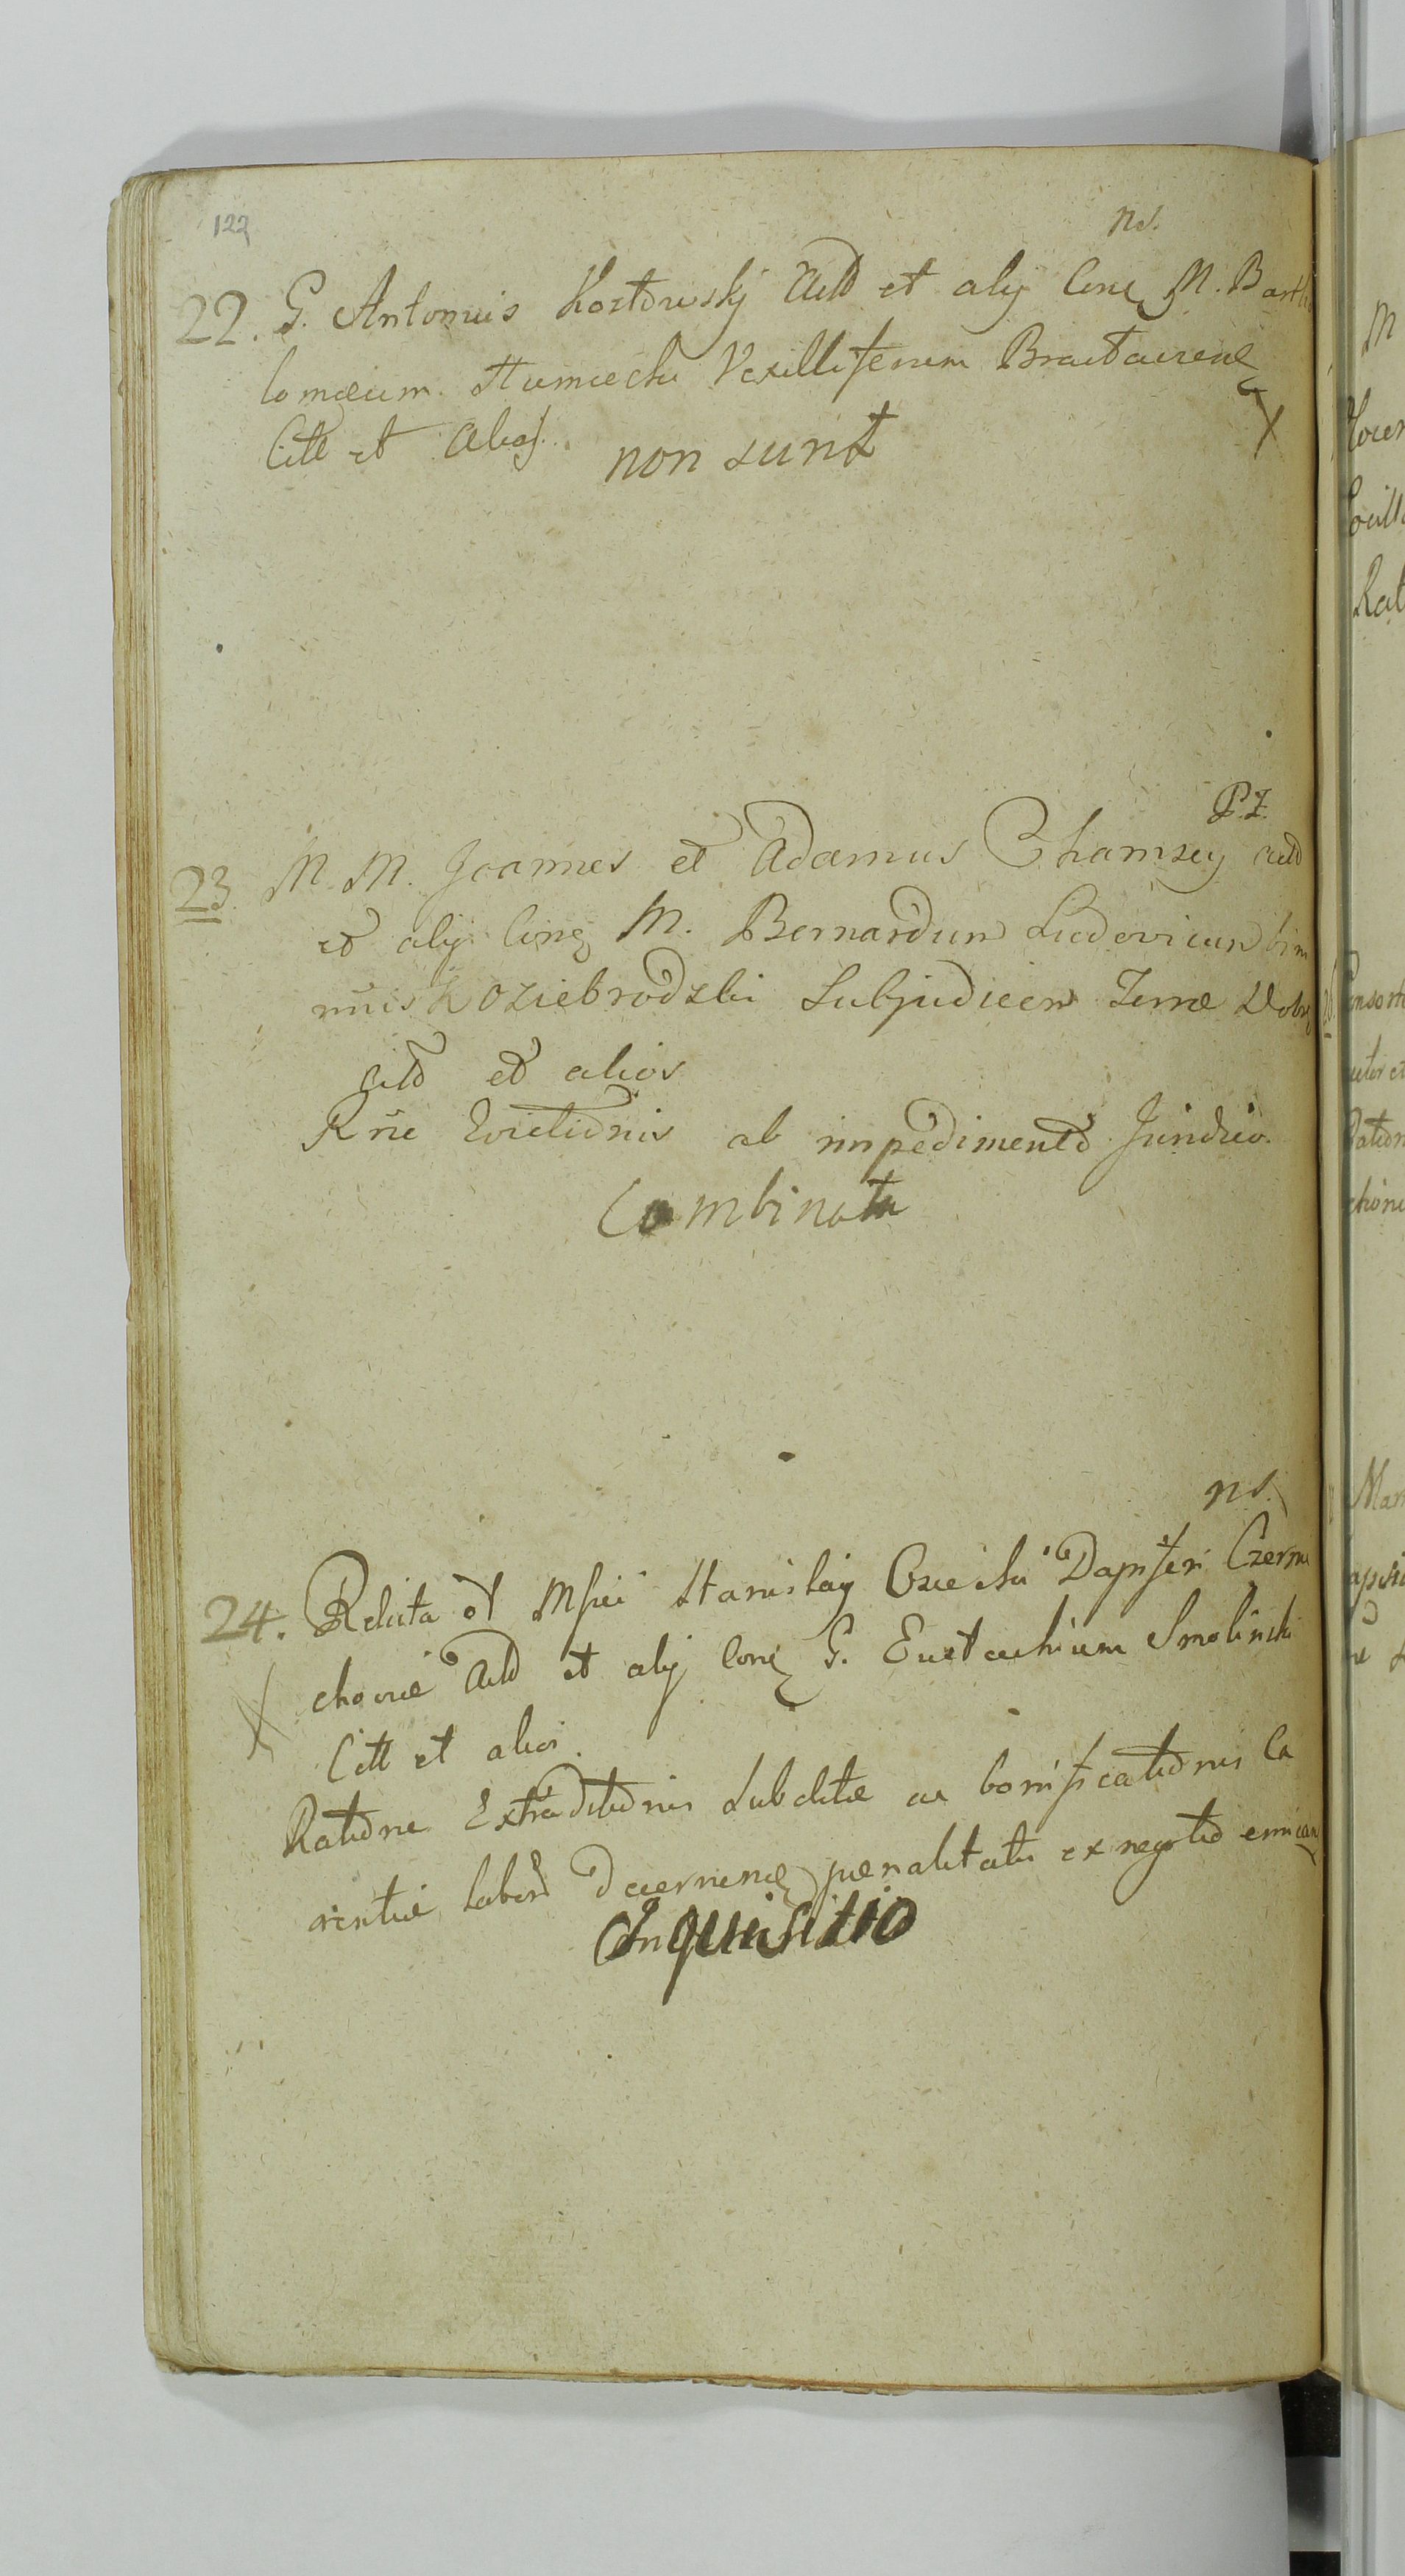 122
ns.
22. G. Antonius Kostowskj Actt et alij Conq M. Bartho
lomæum Humiecki Vexilliferum Bractaviens
Citt et alios. non sunt
P. Z.
23. M. M. Joannes et Adamus Chamscy actt
et alij Conq M. Bernardum Ludovicum bim
mis Koziebrodzki Subjudicem Terræ Dobrz
citt et alios
Rne Evictionis ab impedimento Juridico.
Combinata
ns.
24. Relicta ol Mfici Stanislaj Czecki Dapiferi Czerni
choviæ Actt et alij Conq G. Eustachium Smolinski
Citt et alios.
Ratione Extraditionis Subditæ ac bonificationis Ca
rentiæ labor decernendæ pænalitatis ex negotio
Inquisitio